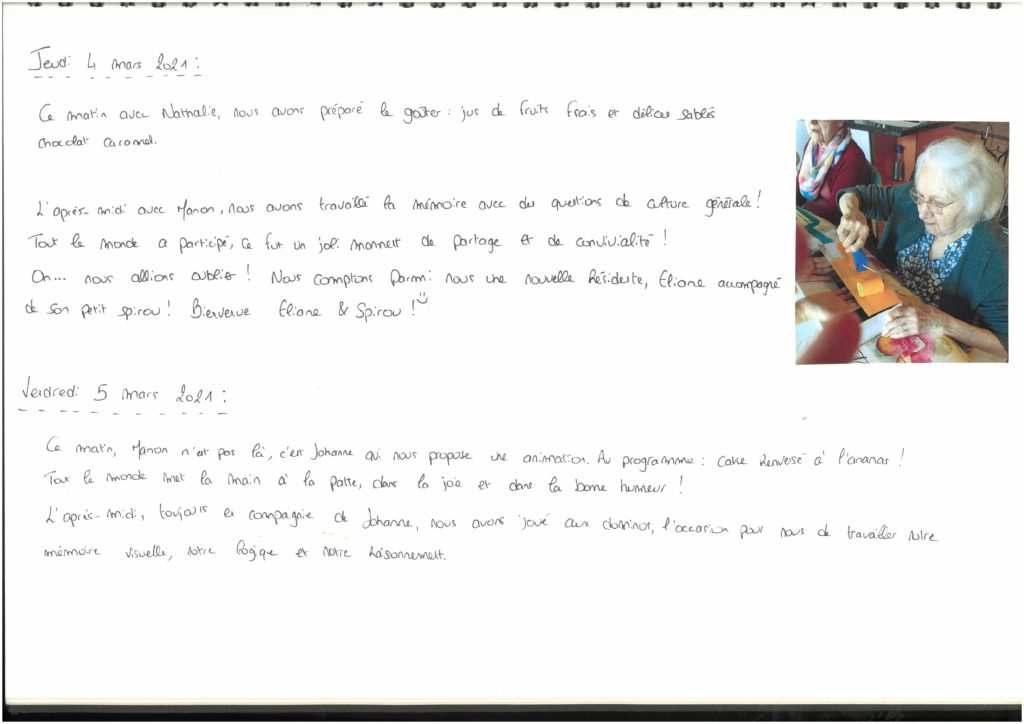 Jeudi 4 mars 2021 :
Ce matin avec Nathalie, nous avons préparé le goûter : jus de fruits frais et délices sablés
chocolat caramel.
L'après-midi avec Manon, nous avons travaillé la mémoire avec des questions de culture générale !
Tout le monde a participé, ce fut un joli moment de partage et de convivialité !
Oh... nous allions oublier ! Nous comptons parmi nous une nouvelle résidente, Eliane accompagné
de son petit spirou ! Bienvenue Eliane & Spirou !
Vendredi 5 mars 2021 :
Ce matin, Manon n'est pas là, c'est Johanne qui nous propose une animation. Au programme : cake renversé à l'ananas !
Tout le monde met la main à la patte, dans la joie et dans la bonne humeur !
L'après-midi, toujours en compagnie de Johanne, nous avons joué aux dominos, l'occasion pour nous de travailler notre
mémoire visuelle, notre logique et notre raisonnement.